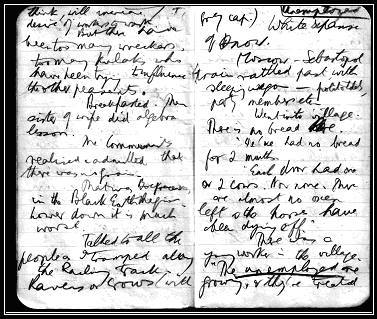 think, will
desire of
But there have
been too many wreckers,
too many kulaks who
have been trying to influence
the other peasants.
Breakfasted. Then
sister of wife did algebra
lesson.
The Communists
realised & admitted that
there was no grain.
That was
in the Black Earth region.
lower down it is much
worse.
Talked to all the
people as I tramped along
the Railway Track.
Ravens or Crows will
Grey cap.) Unemployed
White expanse
of snow.
Moscow - Sebastopol
train rattled past with
sleeping wagon -
party members etc.
Went into village.
There is no bread here.
"We've had no bread
for 2 months.
Each door had one
or 2 cows. Now none. There
are almost no oxen
left & the horses have
been dying off."
There was a
young worker in the village.
"The unemployed are
growing, & they're treated